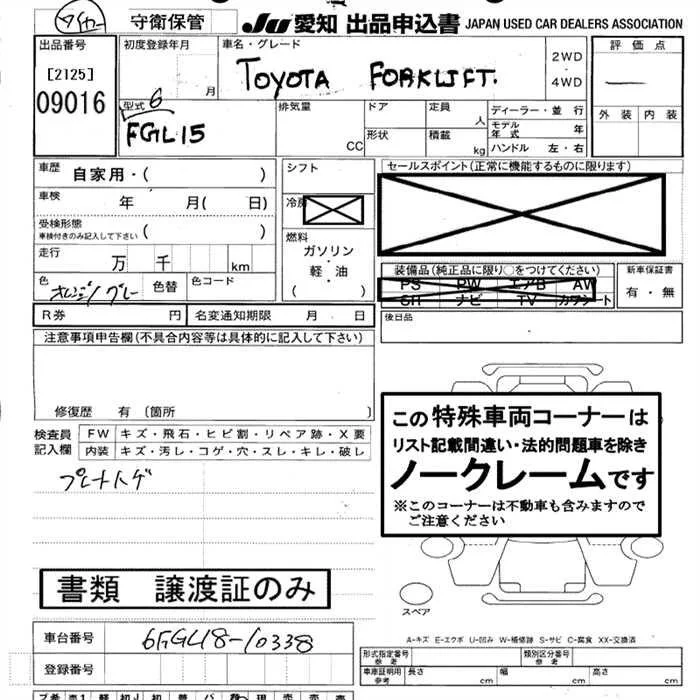 守衛保管 Ju 愛知 出品申込書 JAPAN USED CAR DEALERS ASSOCIATION
出品番号 初度登録年月 車名・グレード 2WD 評価点
[2125] 月 TOYOTA FORKLIFT. ・
09016 4WD
型式 6 排気量 ドア 定員 ディーラー・並 行 外装 内装
FGL15 人 モデル年式 年
CC 形状 積載 kg ハンドル 左・右
車歴 自家用・( ) シフト セールスポイント(正常に機能するものに限ります)
車検 年 月( 日) 冷房
受検形態
車検付きのみ記入して下さい ( ) 燃料
走行 万 千 km ガソリン
・
軽・油
( )
装備品(純正品に限り○をつけてください) 新車保証書
PS PW エアB AW 有・無
SR ナビ TV カワシート
色 オレンジ/グレー 色替 色コード
R券 円 名変通知期限 月 日 後日品
注意事項申告欄(不具合内容等は具体的に記入して下さい)
修復歴 有 〔箇所 〕
この特殊車両コーナーは
リスト記載間違い・法的問題車を除き
ノークレームです
※このコーナーは不動車も含みますので
ご注意ください
検査員 FW キズ・飛石・ヒビ割・リペア跡・X要
記入欄 内装 キズ・汚レ・コゲ・穴・スレ・キレ・破レ
書類 譲渡証のみ
スペア
A-キズ E-エクボ U-凹み W-補修跡 S-サビ C-腐食 XX-交換済
車台番号 6FGL18-10338
登録番号
形式指定番号 参考 類別区分番号 参考
車庫証明用 参考 長さ 幅 高さ
cm cm cm